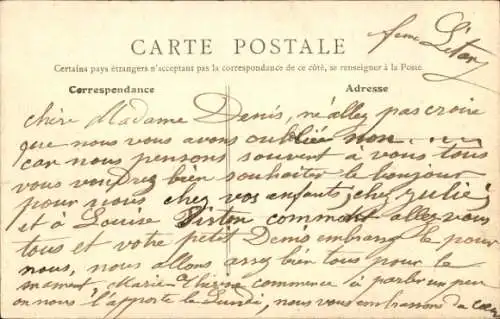 feme Litar
CARTE POSTALE
Certains pays étrangers n'acceptant pas la correspondance de ce côté, se renseigner à la Poste.
Correspondance
Adresse
chère Madame Denis, n'allez pas croire
que nous vous avons oubliée non . . . .
car nous pensons souvent a vous tous
vous voudrez bien souhaiter le bonjour
pour nous chez vos enfants, chez Julie,
et à Louise commant allez vous
tous et votre petit Denis embrass le pour
nous, nous allons assez bien tous pour le
mament, Marie Thérèse commence à parler un peu
on nous l'apporte le Lundi, nous vous embrassons de cœur